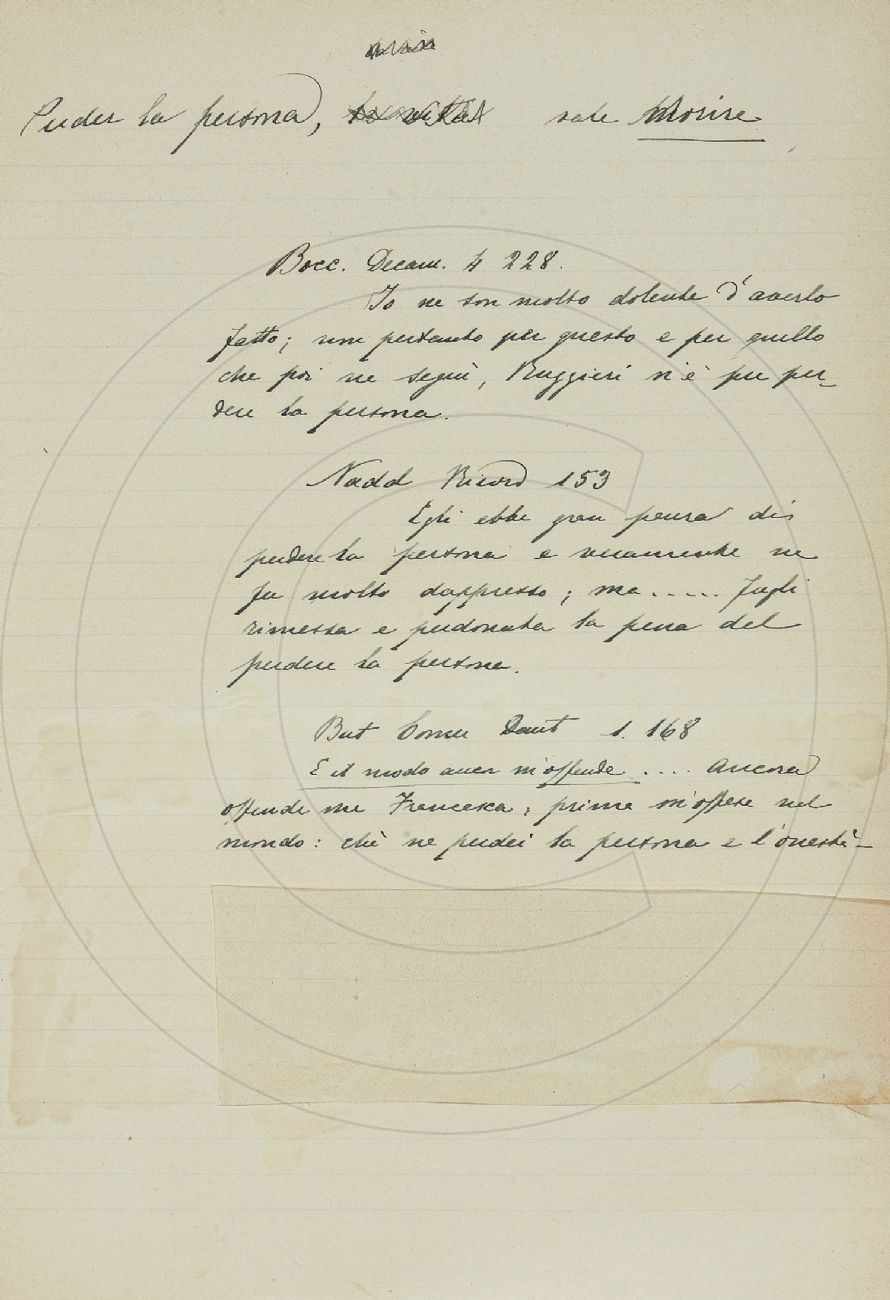 Perder la persona, la vita vale Morire
Bocc. Decam. 4 228.
Io ne son molto dolente d'averlo
fatto; non pertanto per questo e per quello
che poi ne seguì, Ruggieri n'è per per-
dere la persona.
Nadd Ricord 153
Egli ebbe gran paura di
perdere la persona e veramente ne
fu molto dappresso; ma ..... fugli
rimessa e perdonata la pena del
perdere la persona.
But Comm Dant 1. 168
E il modo ancor m'offende .... Ancora
offende me Francesca, prima m'offese nel
mondo: chè ne perdei la persona e l'onestà